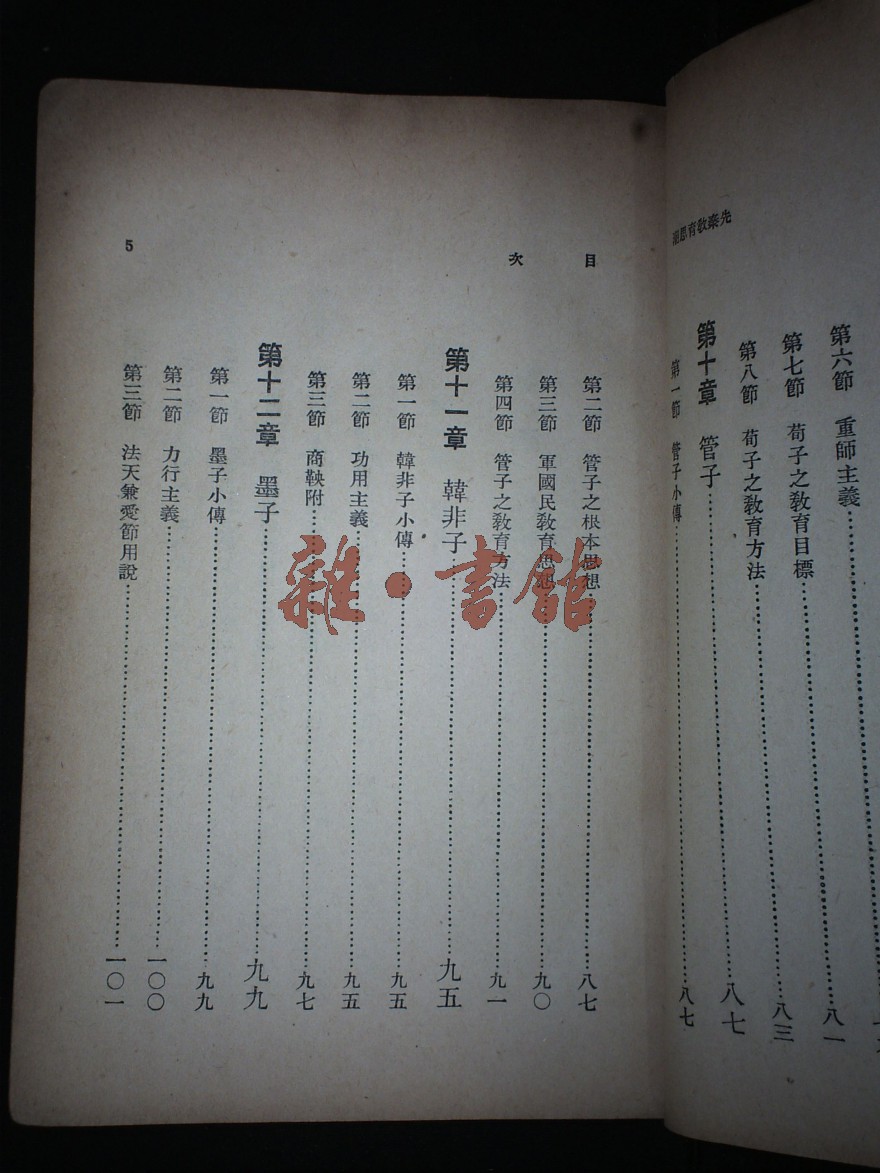 先秦敎育思潮
第六節　重師主義……八一
第七節　荀子之敎育目標……八三
第八節　荀子之敎育方法
第十章　管子……八七
第一節　管子小傳……八七
目次
第二節　管子之根本思想……八七
第三節　軍國民敎育思想……九〇
第四節　管子之敎育方法……九一
第十一章　韓非子……九五
第一節　韓非子小傳……九五
第二節　功用主義……九五
第三節　商鞅附……九七
第十二章　墨子……九九
第一節　墨子小傳……九九
第二節　力行主義……一〇〇
第三節　法天兼愛節用說……一〇一
5
雜·書館